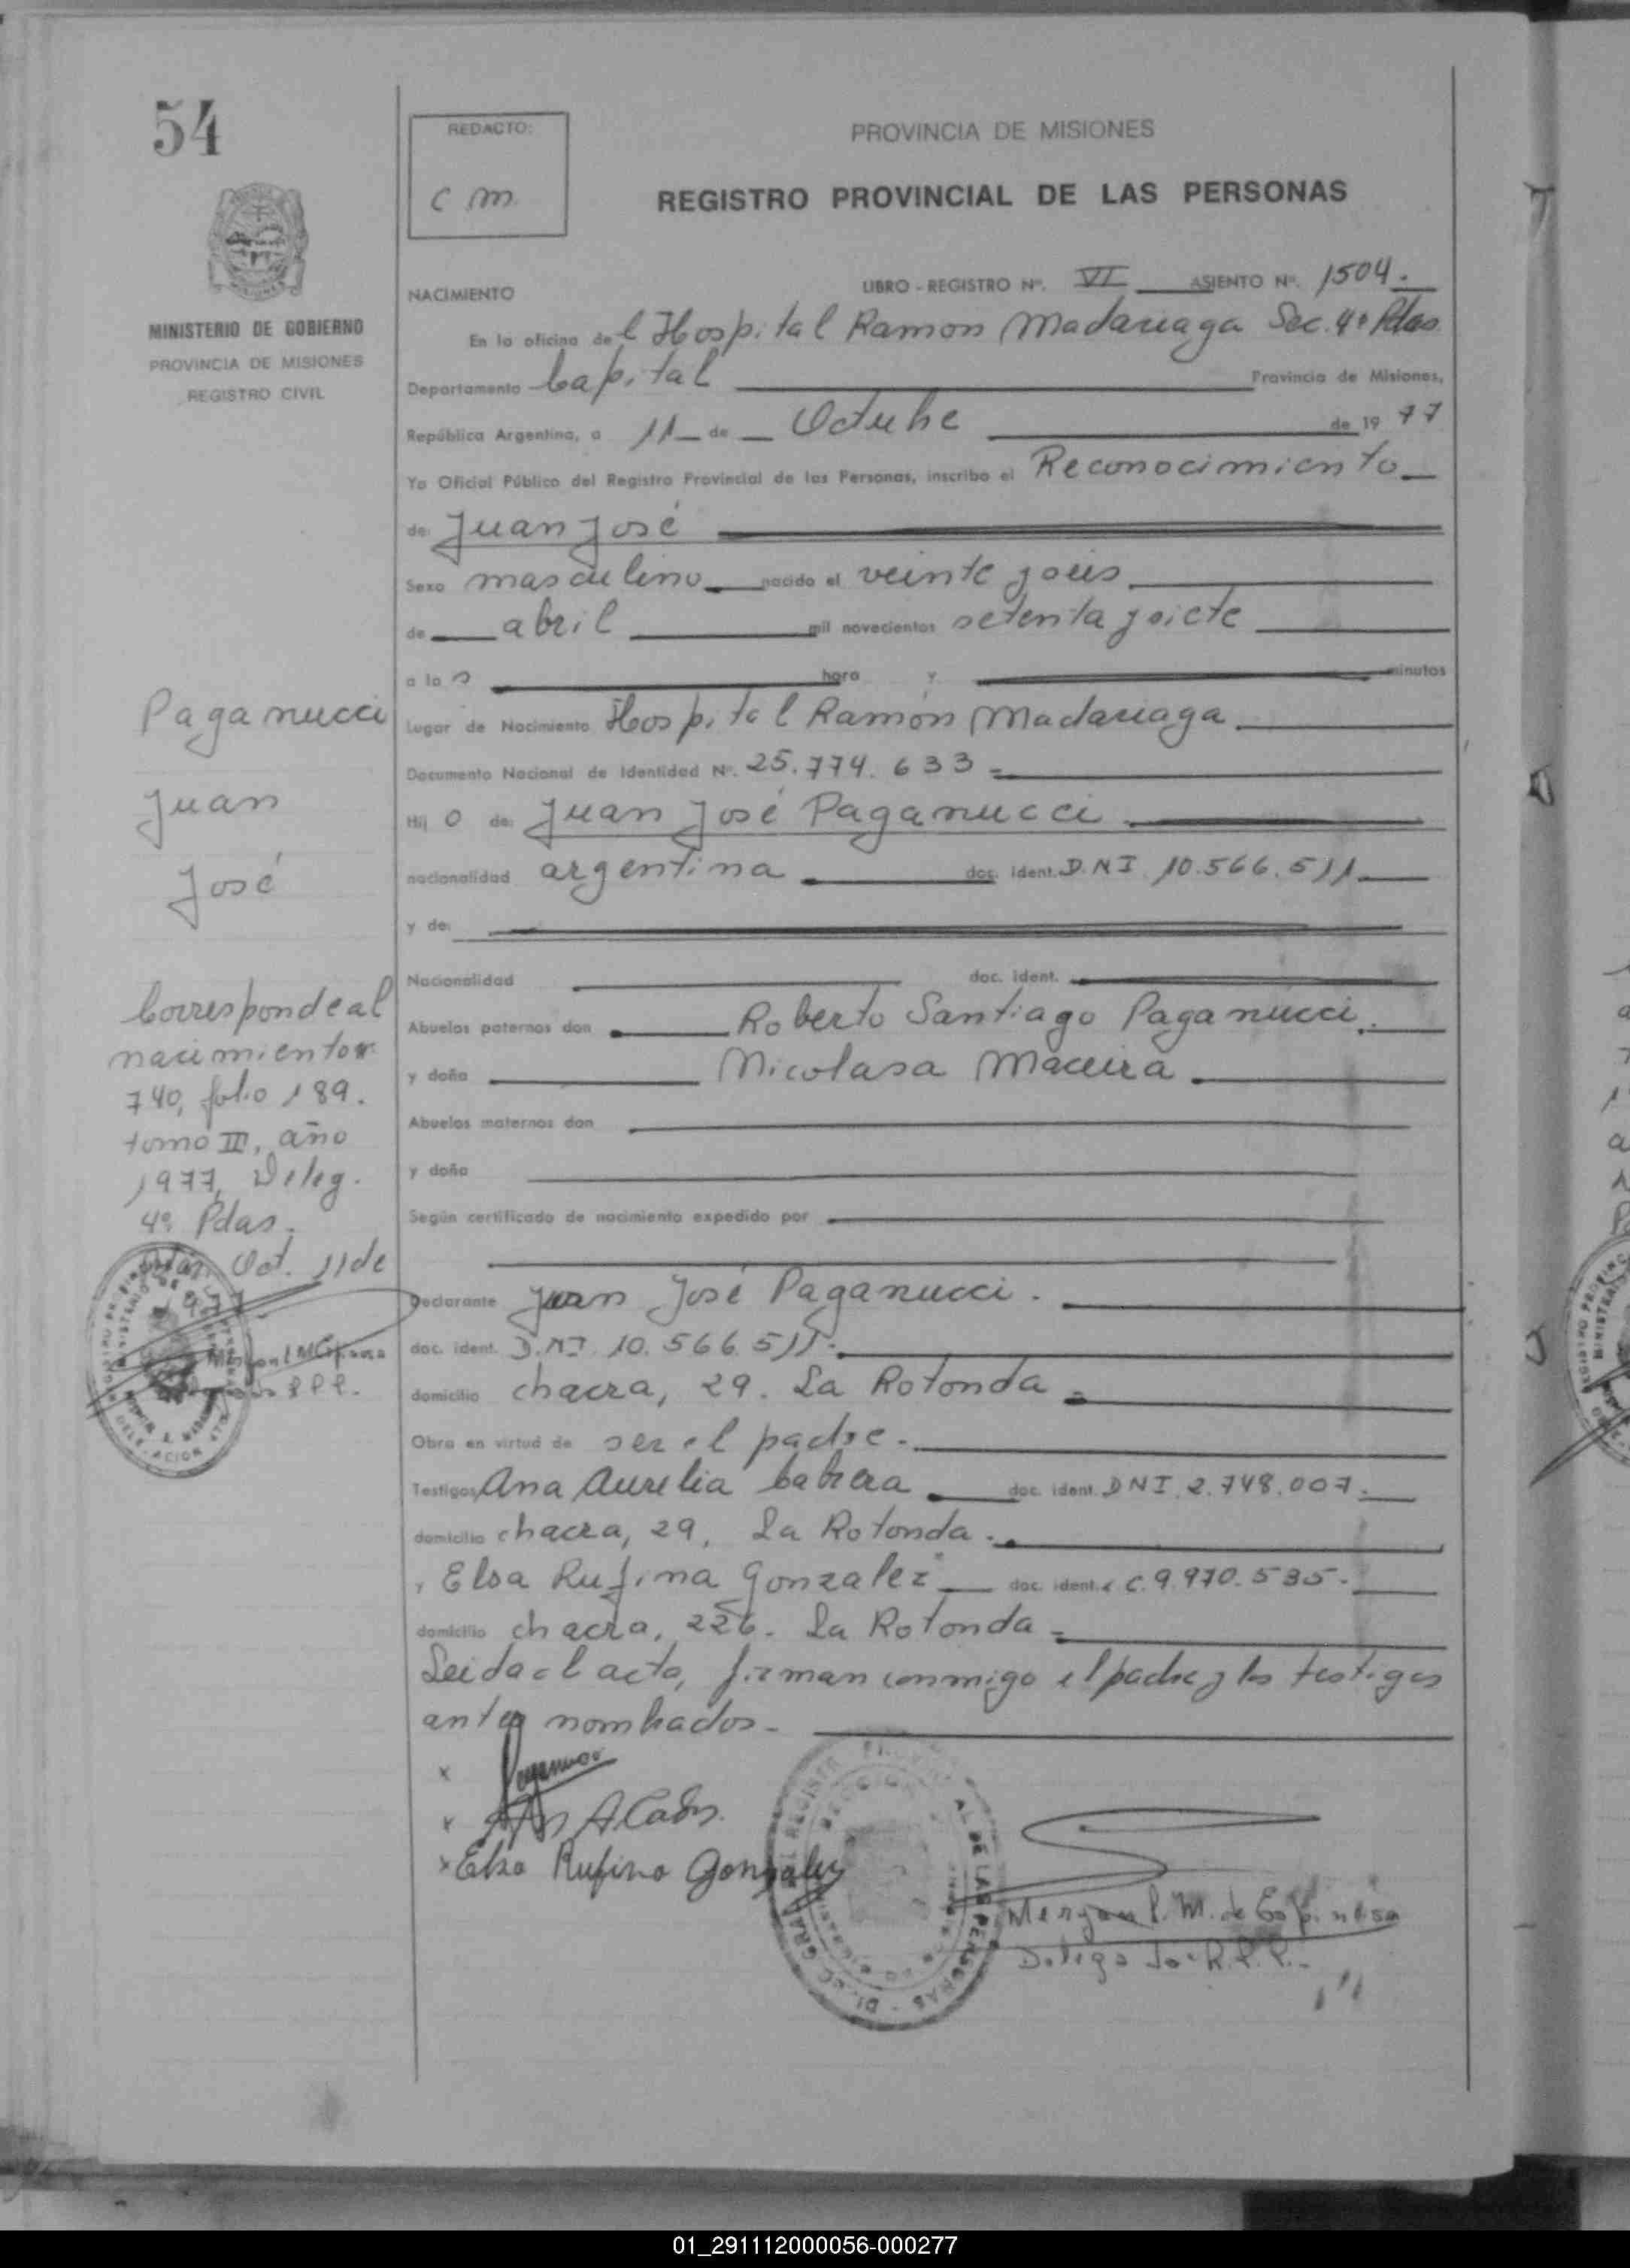 54
REDACTO:
C M.
PROVINCIA DE MISIONES
REGISTRO PROVINCIAL DE LAS PERSONAS
MINISTERIO DE GOBIERNO
PROVINCIA DE MISIONES
REGISTRO CIVIL
NACIMIENTO LIBRO - REGISTRO Nº. VI ASIENTO Nº. 1504.
En la oficina del Hospital Ramon Madariaga Sec. 4ª Pdas
Departamento Capital Provincia de Misiones,
República Argentina, a 11 de Octubre de 1977
Yo Oficial Público del Registro Provincial de las Personas, inscribo el Reconocimiento
de: Juan José
Sexo masculino nacido el veinte y seis
de abril mil novecientos setenta y siete
a las hora y minutos
Lugar de Nacimiento Hospital Ramon Madariaga
Documento Nacional de Identidad Nº. 25.774.633
Hijo de: Juan José Paganucci
nacionalidad argentina doc. ident. D.N.I 10.566.511
y de:
Nacionalidad doc. ident.
Abuelos paternos don Roberto Santiago Paganucci.
y doña Nicolasa Maceira
Abuelos maternos don
y doña
Según certificado de nacimiento expedido por
Declarante Juan José Paganucci.
doc. ident. D.N.I. 10.566.511.
domicilio chacra, 29. La Rotonda
Obra en virtud de ser el padre.
Testigos Ana Aurelia Cabrera doc. ident. DNI. 2.748.007.
domicilio chacra, 29, La Rotonda.
y Elsa Rufina Gonzalez doc. ident. L C. 9.970.535.
domicilio chacra, 226. La Rotonda
Leida el acta, firman conmigo el padre y los testigos
antes nombrados.
x Paganucci
x
x Elsa Rufina Gonzalez
Meryan L. M. de Espinosa
Delegada R.P.P.
Paganucci
Juan
José
Corresponde al
nacimiento
740, folio 189.
tomo III, año
1977, Deleg.
4ª Pdas.
Pdas, Oct. 11 de
1977
R.P.P.
01_291112000056-000277